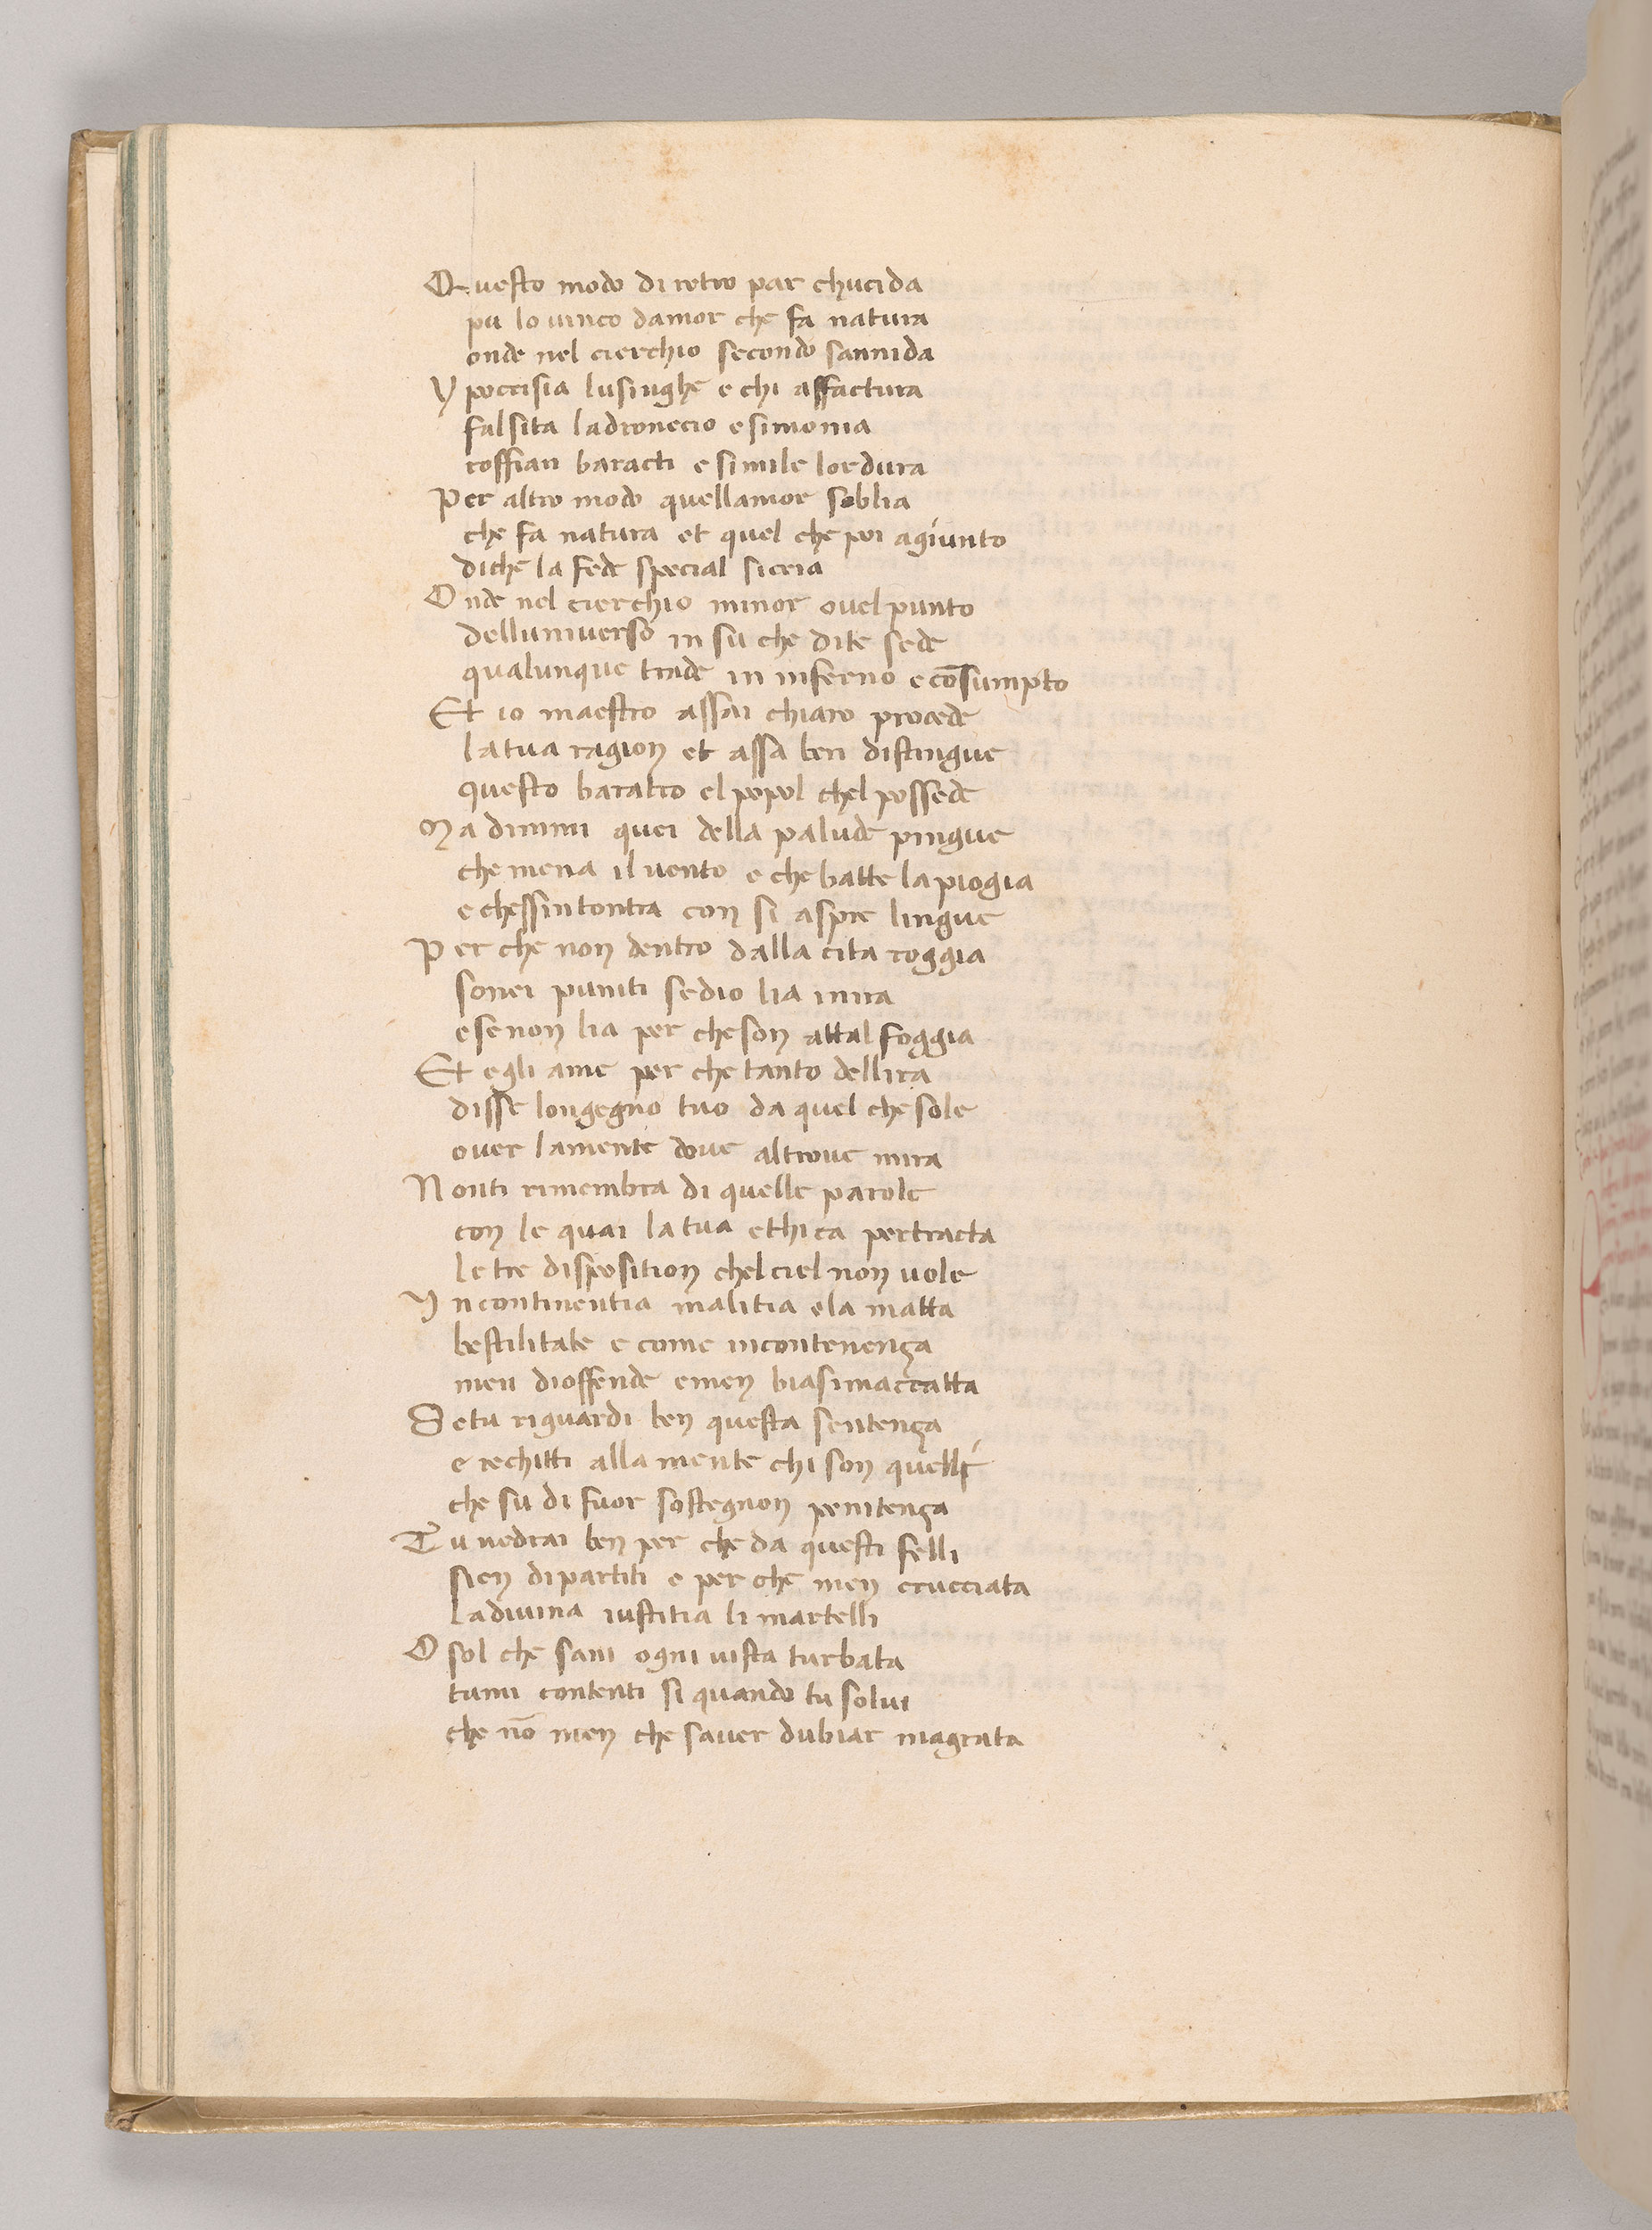 Questo modo di retro par chucida
pu lo uinco damor che fa natura
onde nel cierchio secondo sannida
Ypoccisia lusinghe e chi affactura
falsita ladronecio e simonia
roffian baracti e simile lordura
Per altro modo quellamor soblia
che fa natura et quel che poi agiunto
di che la fede special si cria
Onde nel cierchio minor ouel punto
delluniuerso in su che dite sede
qualunque trade in inferno e cōsumpto
Et io maestro assai chiaro procede
la tua ragion et assa ben distingue
questo baratro el popol chel possede
Ma dimmi quei della palude pingue
che mena il uento e che batte la piogia
e chessintontra con si aspre lingue
Per che non dentro dalla cita roggia
sonei puniti se dio lia inira
e se non lia per che son attal foggia
Et egli ame per che tanto dellira
disse longegno tuo da quel che sole
ouer la mente doue altroue mira
Non ti rimembra di quelle parole
con le quai la tua ethica pertracta
le tre disposition chel ciel non uole
Yncontinentia malitia e la matta
bestilitate e come incontenença
men dioffende e men biasimaccatta
Se tu riguardi ben questa sentença
e rechitti alla mente chi son quelli
che su di fuor sostegnon penitença
Tu uedrai ben per che da questi felli
sien dipartiti e per che men crucciata
la diuina iustitia li martelli
O sol che sani ogni uista turbata
tumi contenti si quando tu solui
che nō men che sauer dubiar magrata